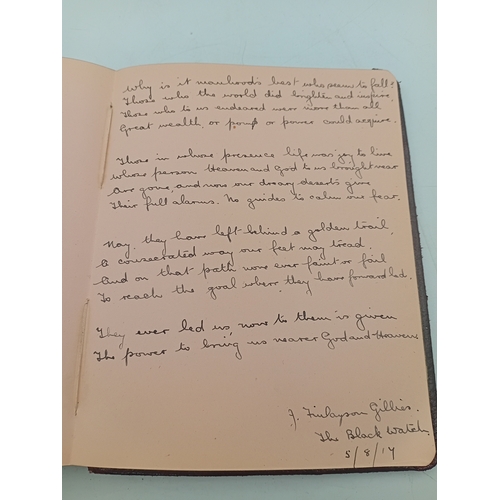 Why is it manhood's best who seem to fall?
Those who the world did brighten and inspire,
Those who to us endeared were more than all
Great wealth, or pomp or power could acquire.
Those in whose presence life was joy to live
Whose person Heaven and God to us brought near
Are gone, and now our dreary deserts give
Their full alarms. No guides to calm our fear.
Nay, they have left behind a golden trail,
A consecrated way our feet may tread.
And on that path none ever faint or fail
To reach the goal where they have forward led.
They ever led us, now to them is given
The power to bring us nearer God and Heaven
J. Finlayson Gillies.
The Black Watch.
5/8/17